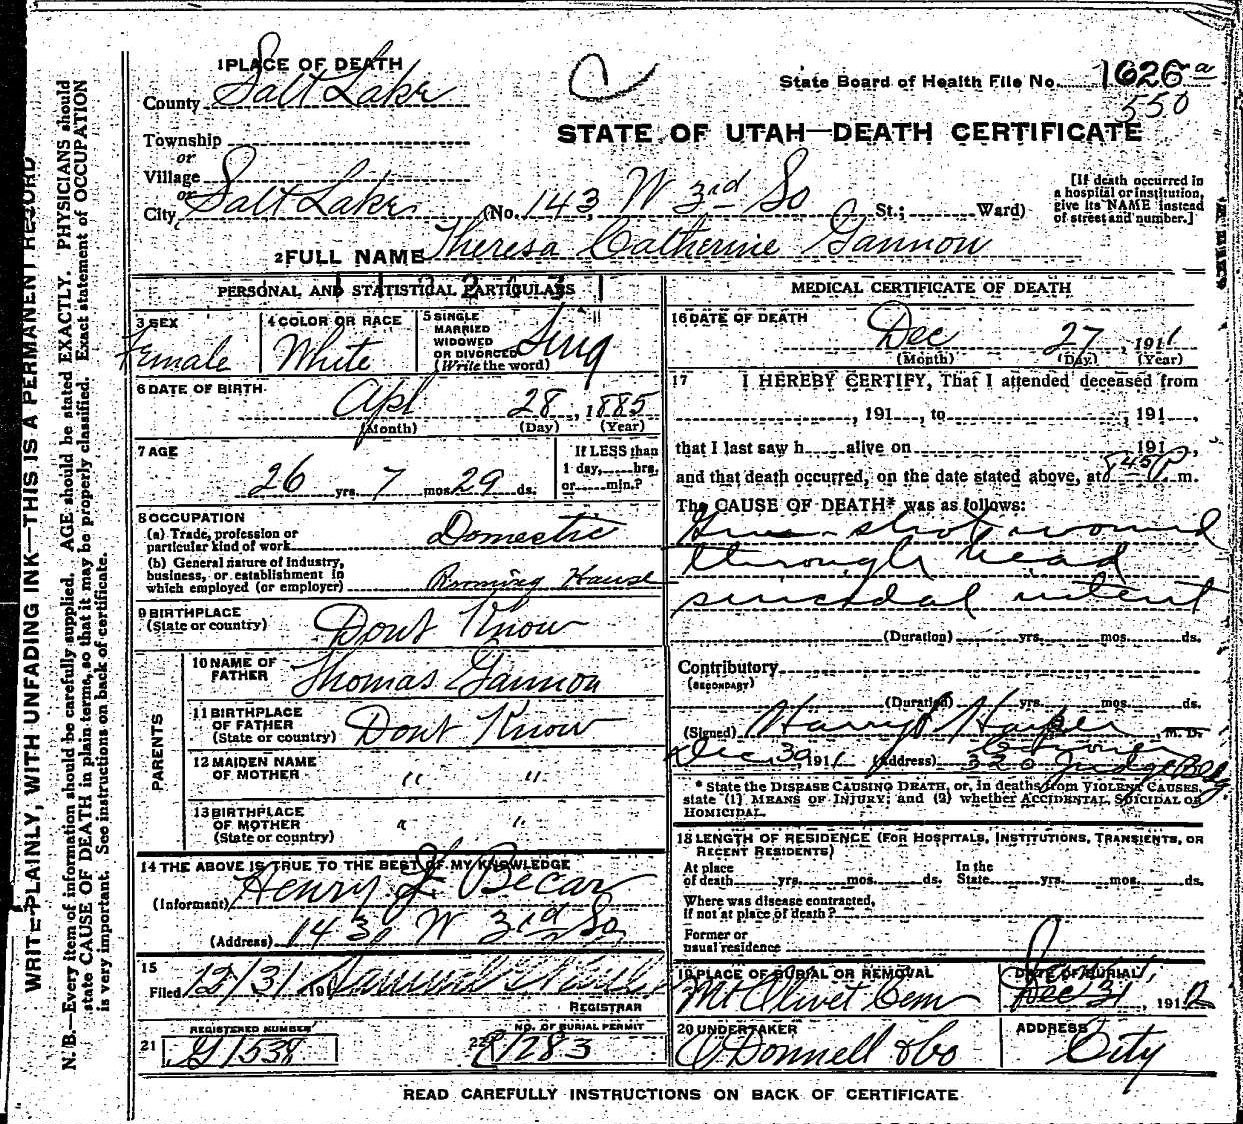 1 PLACE OF DEATH
County Salt Lake
Township
or
Village
or
City Salt Lake (No. 143, W 3rd So St.; Ward)
State Board of Health File No. 1626 a
550
STATE OF UTAH—DEATH CERTIFICATE
[If death occurred in
a hospital or institution,
give its NAME instead
of street and number.]
2 FULL NAME Theresa Catherine Gannon
PERSONAL AND STATISTICAL PARTICULARS
3 SEX
Female
4 COLOR OR RACE
White
5 SINGLE
MARRIED
WIDOWED
OR DIVORCED
(Write the word)
Sing
6 DATE OF BIRTH
Apl 28, 1885
(Month) (Day) (Year)
7 AGE
26 yrs. 7 mos. 29 ds.
If LESS than
1 day, hrs.
or min.?
8 OCCUPATION
(a) Trade, profession or
particular kind of work Domestic
(b) General nature of Industry,
business, or establishment in
which employed (or employer) Rooming House
9 BIRTHPLACE
(State or country) Dont Know
PARENTS
10 NAME OF
FATHER Thomas Gannon
11 BIRTHPLACE
OF FATHER
(State or country) Dont Know
12 MAIDEN NAME
OF MOTHER " "
13 BIRTHPLACE
OF MOTHER
(State or country) " "
14 THE ABOVE IS TRUE TO THE BEST OF MY KNOWLEDGE
(Informant) Henry Becar
(Address) 143 W 3rd So
15
Filed 12/31 191
REGISTRAR
21 REGISTERED NUMBER
G1538
22 NO. OF BURIAL PERMIT
1283
MEDICAL CERTIFICATE OF DEATH
16 DATE OF DEATH
Dec 27, 1911
(Month) (Day) (Year)
17 I HEREBY CERTIFY, That I attended deceased from
, 191 , to , 191 ,
that I last saw h alive on 191 ,
and that death occurred, on the date stated above, at 8 45 P m.
The CAUSE OF DEATH* was as follows:
Gun shot wound
through head
suicidal intent
(Duration) yrs. mos. ds.
Contributory
(SECONDARY)
(Duration) yrs. mos. ds.
(Signed) Harry Harper M. D.
Coroner
Dec 30 1911 (Address) 320 Judge Bldg
* State the DISEASE CAUSING DEATH, or, in deaths from VIOLENT CAUSES,
state (1) MEANS OF INJURY; and (2) whether ACCIDENTAL, SUICIDAL OR
HOMICIDAL.
18 LENGTH OF RESIDENCE (FOR HOSPITALS, INSTITUTIONS, TRANSIENTS, OR
RECENT RESIDENTS)
At place
of death yrs. mos. ds.
In the
State yrs. mos. ds.
Where was disease contracted,
if not at place of death?
Former or
usual residence
19 PLACE OF BURIAL OR REMOVAL
Mt Olivet Cem
DATE OF BURIAL
Jan 1,
Dec 31, 1912
20 UNDERTAKER
O'Donnell & Co
ADDRESS
City
READ CAREFULLY INSTRUCTIONS ON BACK OF CERTIFICATE
WRITE PLAINLY, WITH UNFADING INK—THIS IS A PERMANENT RECORD
N. B.—Every item of information should be carefully supplied. AGE should be stated EXACTLY. PHYSICIANS should
state CAUSE OF DEATH in plain terms, so that it may be properly classified. Exact statement of OCCUPATION
is very important. See instructions on back of certificate.